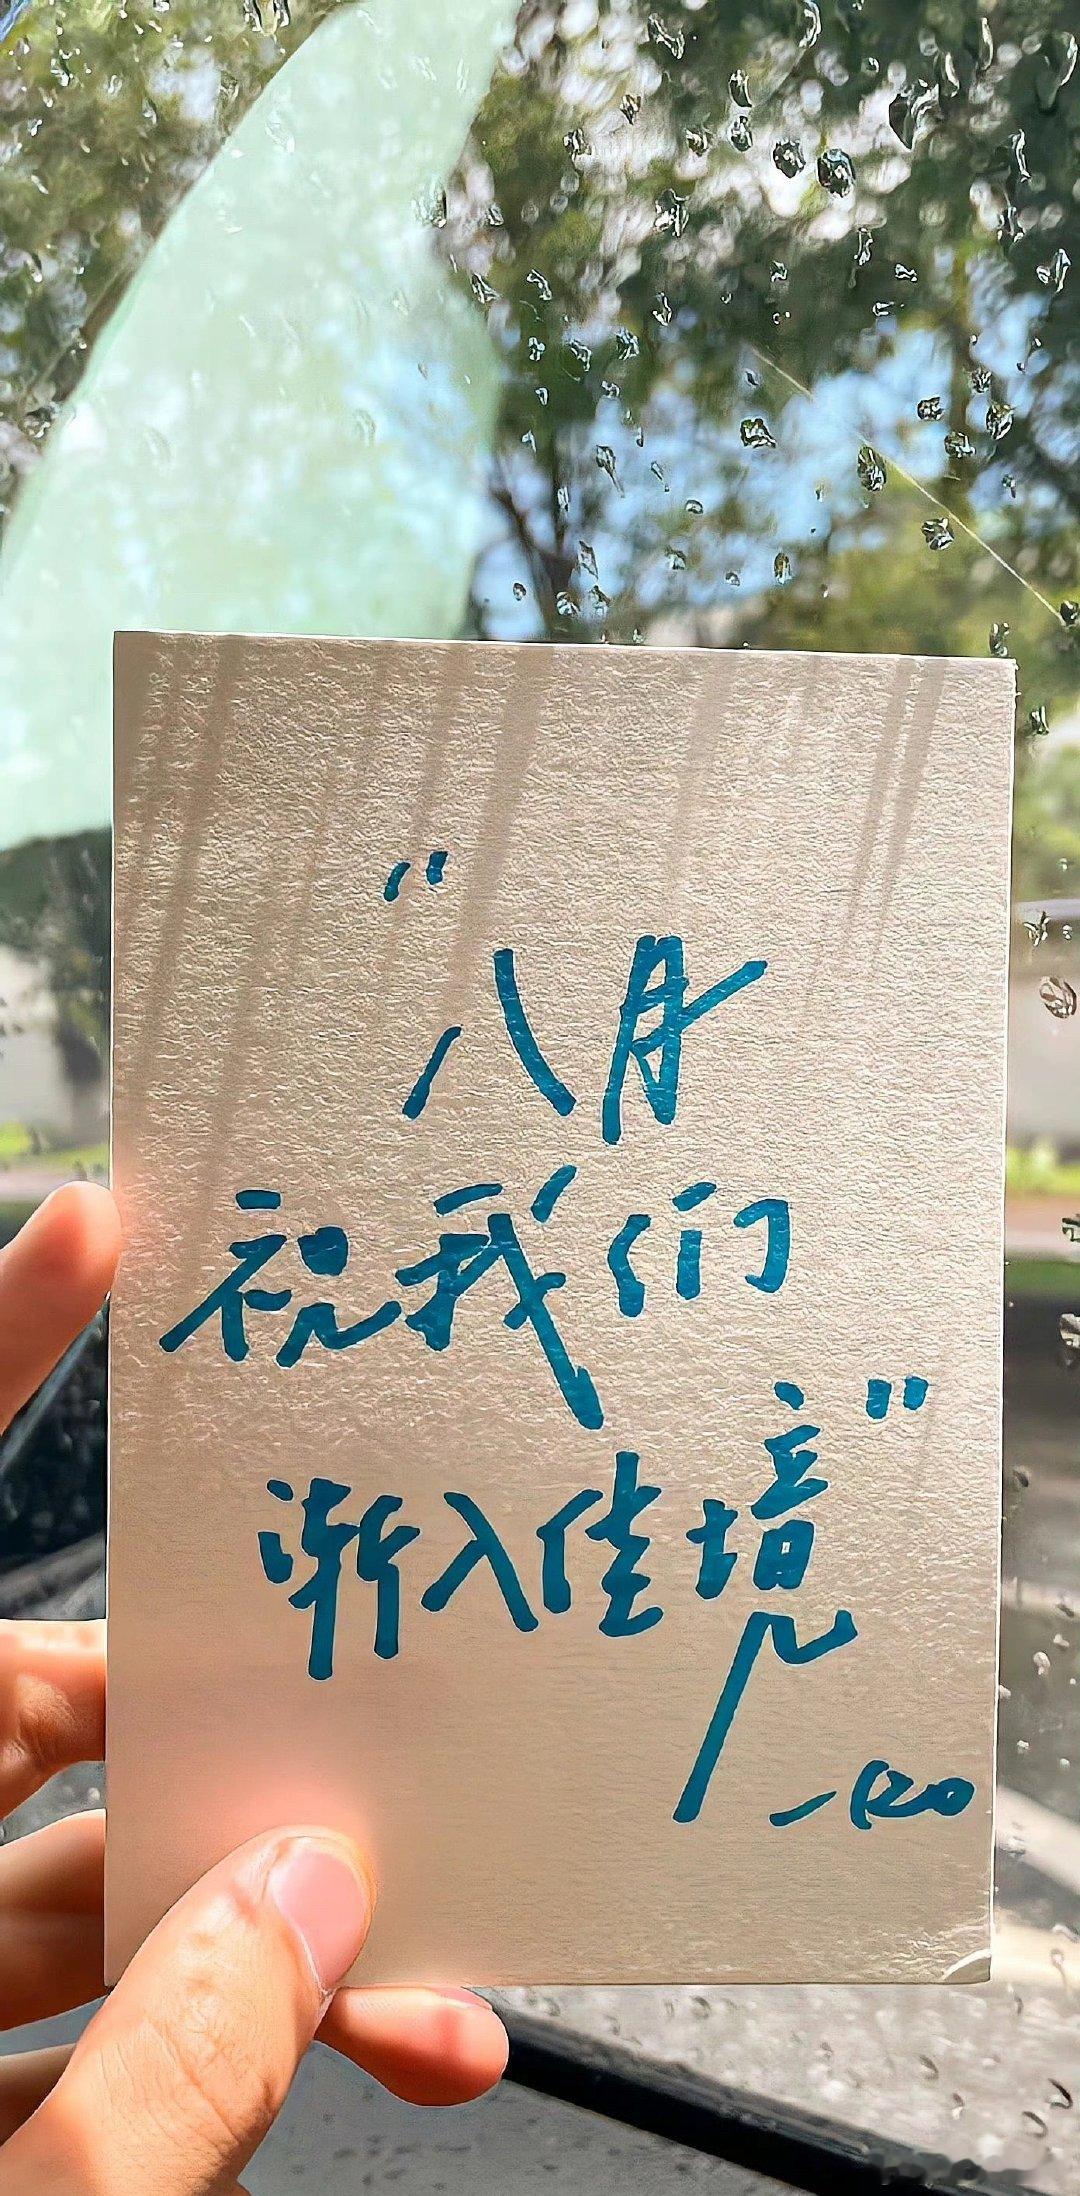 “八月
祝我们
渐入佳境”